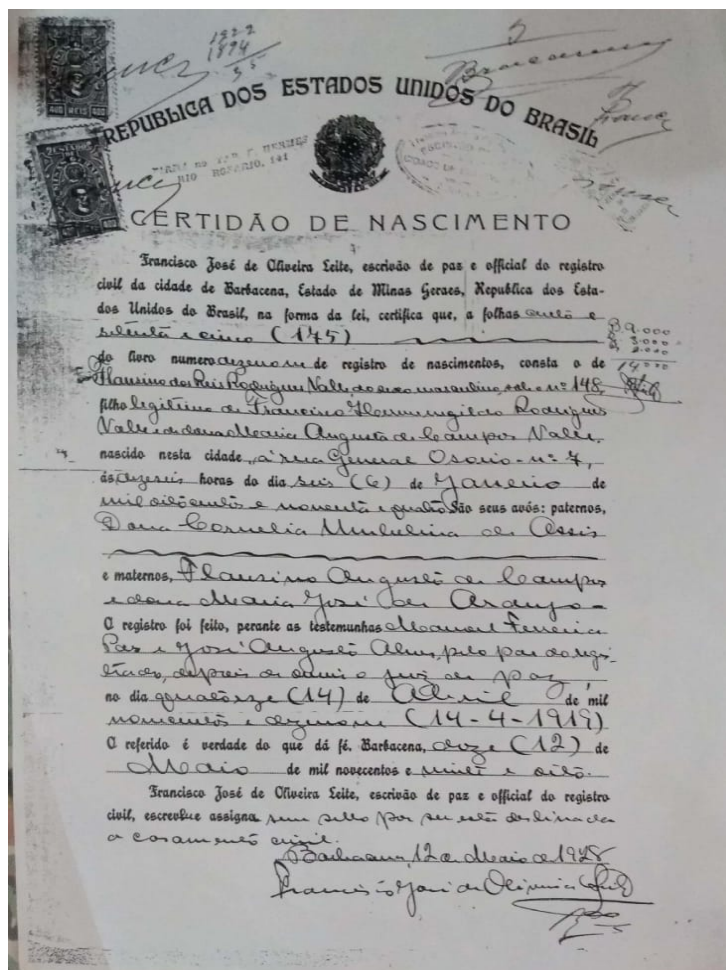 1922
1894
35
REPUBLICA DOS ESTADOS UNIDOS DO BRASIL
RIO ROSARIO, 141
CERTIDÃO DE NASCIMENTO
Francisco José de Oliveira Leite, escrivão de paz e official do registro
civil da cidade de Barbacena, Estado de Minas Geraes, Republica dos Esta-
dos Unidos do Brasil, na forma da lei, certifica que, a folhas cento e
setenta e cinco (175)
do livro numero dezenove de registro de nascimentos, consta o de
Flausino dos Reis Rodrigues Valle, do sexo masculino, sob o nº 148,
filho legitimo de Francisco Hermenegildo Rodrigues
Valle e de dona Maria Augusta de Campos Valle,
nascido nesta cidade, á rua General Osorio - nº 7,
ás dezeseis horas do dia seis (6) de Janeiro de
mil oitocentos e noventa e quatro São seus avós: paternos,
Dona Cornelia Umbelina de Assis
e maternos, Flausino Augusto de Campos
e dona Maria José de Araujo
O registro foi feito, perante as testemunhas Manoel Ferreira
Paz e José Augusto Alves, pelo pae do regis-
trado, depois de ouvir o juiz de paz
no dia quatorze (14) de Abril de mil
novecentos e dezenove (14-4-1919)
O referido é verdade do que dá fé. Barbacena, doze (12) de
Maio de mil novecentos e vinte e oito.
Francisco José de Oliveira Leite, escrivão de paz e official do registro
civil, escreveu e assigna sem sello por ser esta destinada
a casamento civil.
Barbacena, 12 de Maio de 1928
Francisco José de Oliveira Leite